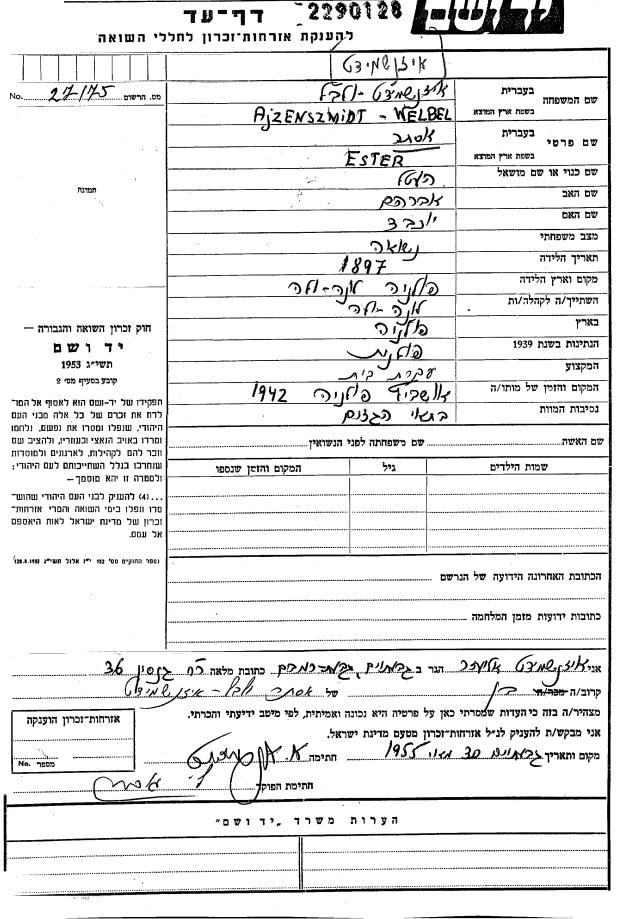 ושם
דף-עד
2290128
להענקת אזרחות-זכרון לחללי השואה
איזנשמידט
No. 27175 מס. הרשום
תמונה
שם המשפחה
בעברית
איזנשמידט - ולבל
בשפת ארץ המוצא
AJZENSZMIDT - WELBEL
שם פרטי
בעברית
אסתר
בשפת ארץ המוצא
ESTER
שם כנוי או שם מושאל
שם האב
אברהם
שם האם
יוכבד
מצב משפחתי
נשואה
תאריך הלידה
1897
מקום וארץ הלידה
פולניה
השתייך/ה לקהלה/ות
בארץ
פולניה
הנתינות בשנת 1939
פולנית
המקצוע
עקרת בית
המקום והזמן של מותו/ה
אושביץ פולניה 1942
נסיבות המוות
בתאי הגזים
חוק זכרון השואה והגבורה —
יד ושם
תשי"ג 1953
קובע בסעיף מס' 2
תפקידו של יד-ושם הוא לאסוף אל המו־
לדת את זכרם של כל אלה מבני העם
היהודי, שנפלו ומסרו את נפשם, נלחמו
ומרדו באויב הנאצי ובעוזריו, ולהציב שם
וזכר להם לקהילות, לארגונים ולמוסדות
שנחרבו בגלל השתייכותם לעם היהודי;
ולמטרה זו יהא מוסמך—
...(4) להעניק לבני העם היהודי שהוש־
מדו ונפלו בימי השואה והמרי אזרחות־
זכרון של מדינת ישראל לאות היאספם
אל עמם.
(ספר החוקים מס' 132 י"ז אלול תשי"ג 28.8.1953)
שם האשה
שם משפחתה לפני הנשואין
שמות הילדים
גיל
המקום והזמן שנספו
הכתובת האחרונה הידועה של הנרשם
כתובות ידועות מזמן המלחמה
אני איזנשמידט אליעזר הגר ב גבעתיים, כתובת מלאה 36
קרוב/ה בן של אסתר ולבל - איזנשמידט
מצהיר/ה בזה כי העדות שמסרתי כאן על פרטיה היא נכונה ואמיתית, לפי מיטב ידיעתי והכרתי.
אני מבקש/ת להעניק לנ"ל אזרחות-זכרון מטעם מדינת ישראל.
מקום ותאריך גבעתיים 30 מאי 1955 חתימה
חתימת הפוקד
אזרחות-זכרון הוענקה
No. מספר
הערות משרד "יד ושם"